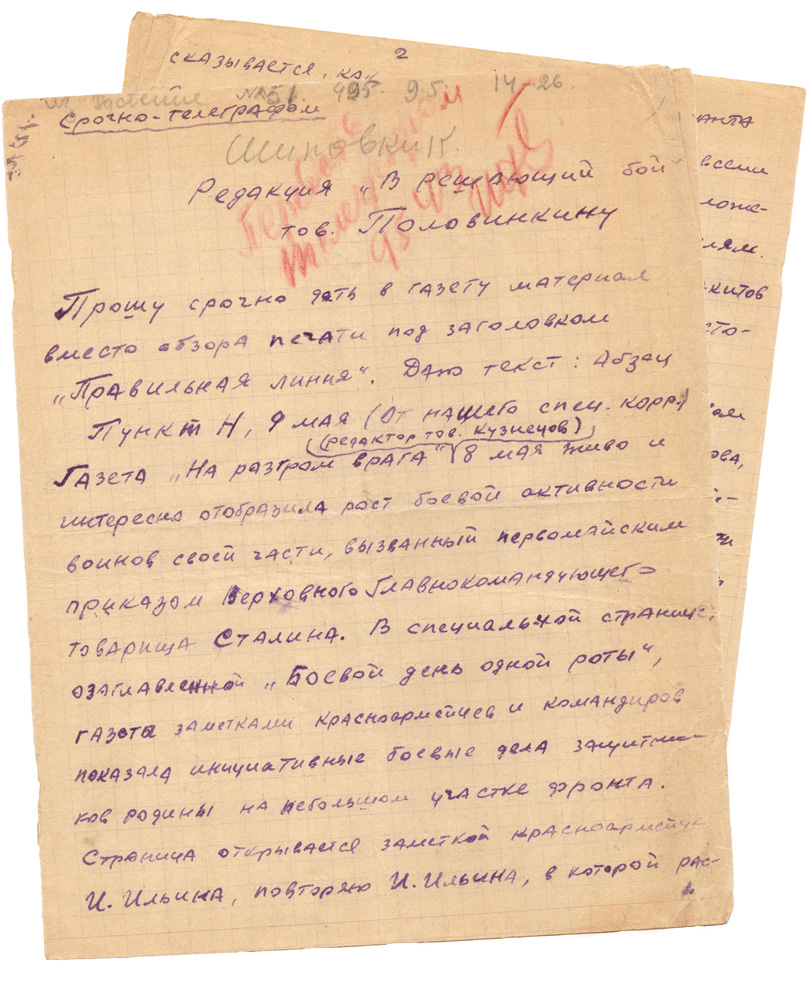 2
сказывается, ка
№51 495 9 5 14-26.
Срочно-телеграфом
Шиповки К.
Редакция „В решающий бой"
тов. Половинкину
Прошу срочно дать в газету материал
вместо обзора печати под заголовком
„Правильная линия". Даю текст: Абзац
Пункт Н, 9 мая (От нашего спец. корр)
(редактор тов. Кузнецов)
Газета „На разгром врага" 8 мая живо и
интересно отобразила рост боевой активности
воинов своей части, вызванный первомайским
приказом Верховного Главнокомандующего
товарища Сталина. В специальной странице,
озаглавленной „Боевой день одной роты",
газеты заметками красноармейцев и командиров
показала инициативные боевые дела защитни-
ков родины на небольшом участке фронта.
Страница открывается заметкой красноармейца
И. Ильина, повторяю И. Ильина, в которой рас-
анта
всеми
ложе-
лям.
китов
сто-
ова,